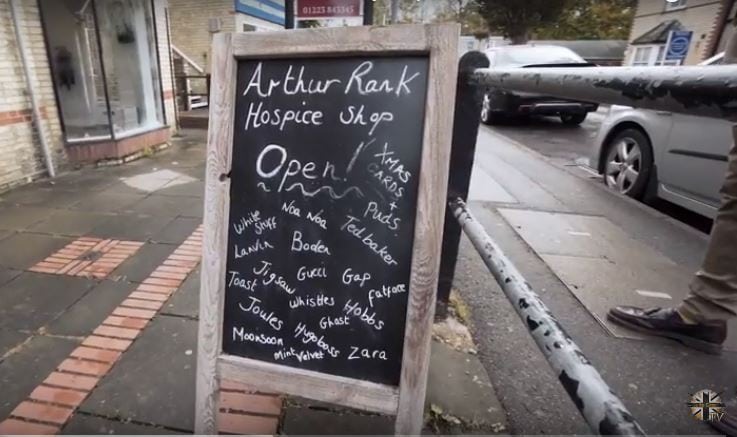 01223 843345
Arthur Rank
Hospice shop
Open!
XMAS
CARDS
+
Puds
White
Stuff
Noa Noa
Ted baker
Lanvin
Boden
Jigsaw
Gucci
Gap
Toast
Whistles
Hobbs
fatface
Joules
Ghost
Hugoboss
Monsoon
Mint Velvet
Zara
TV